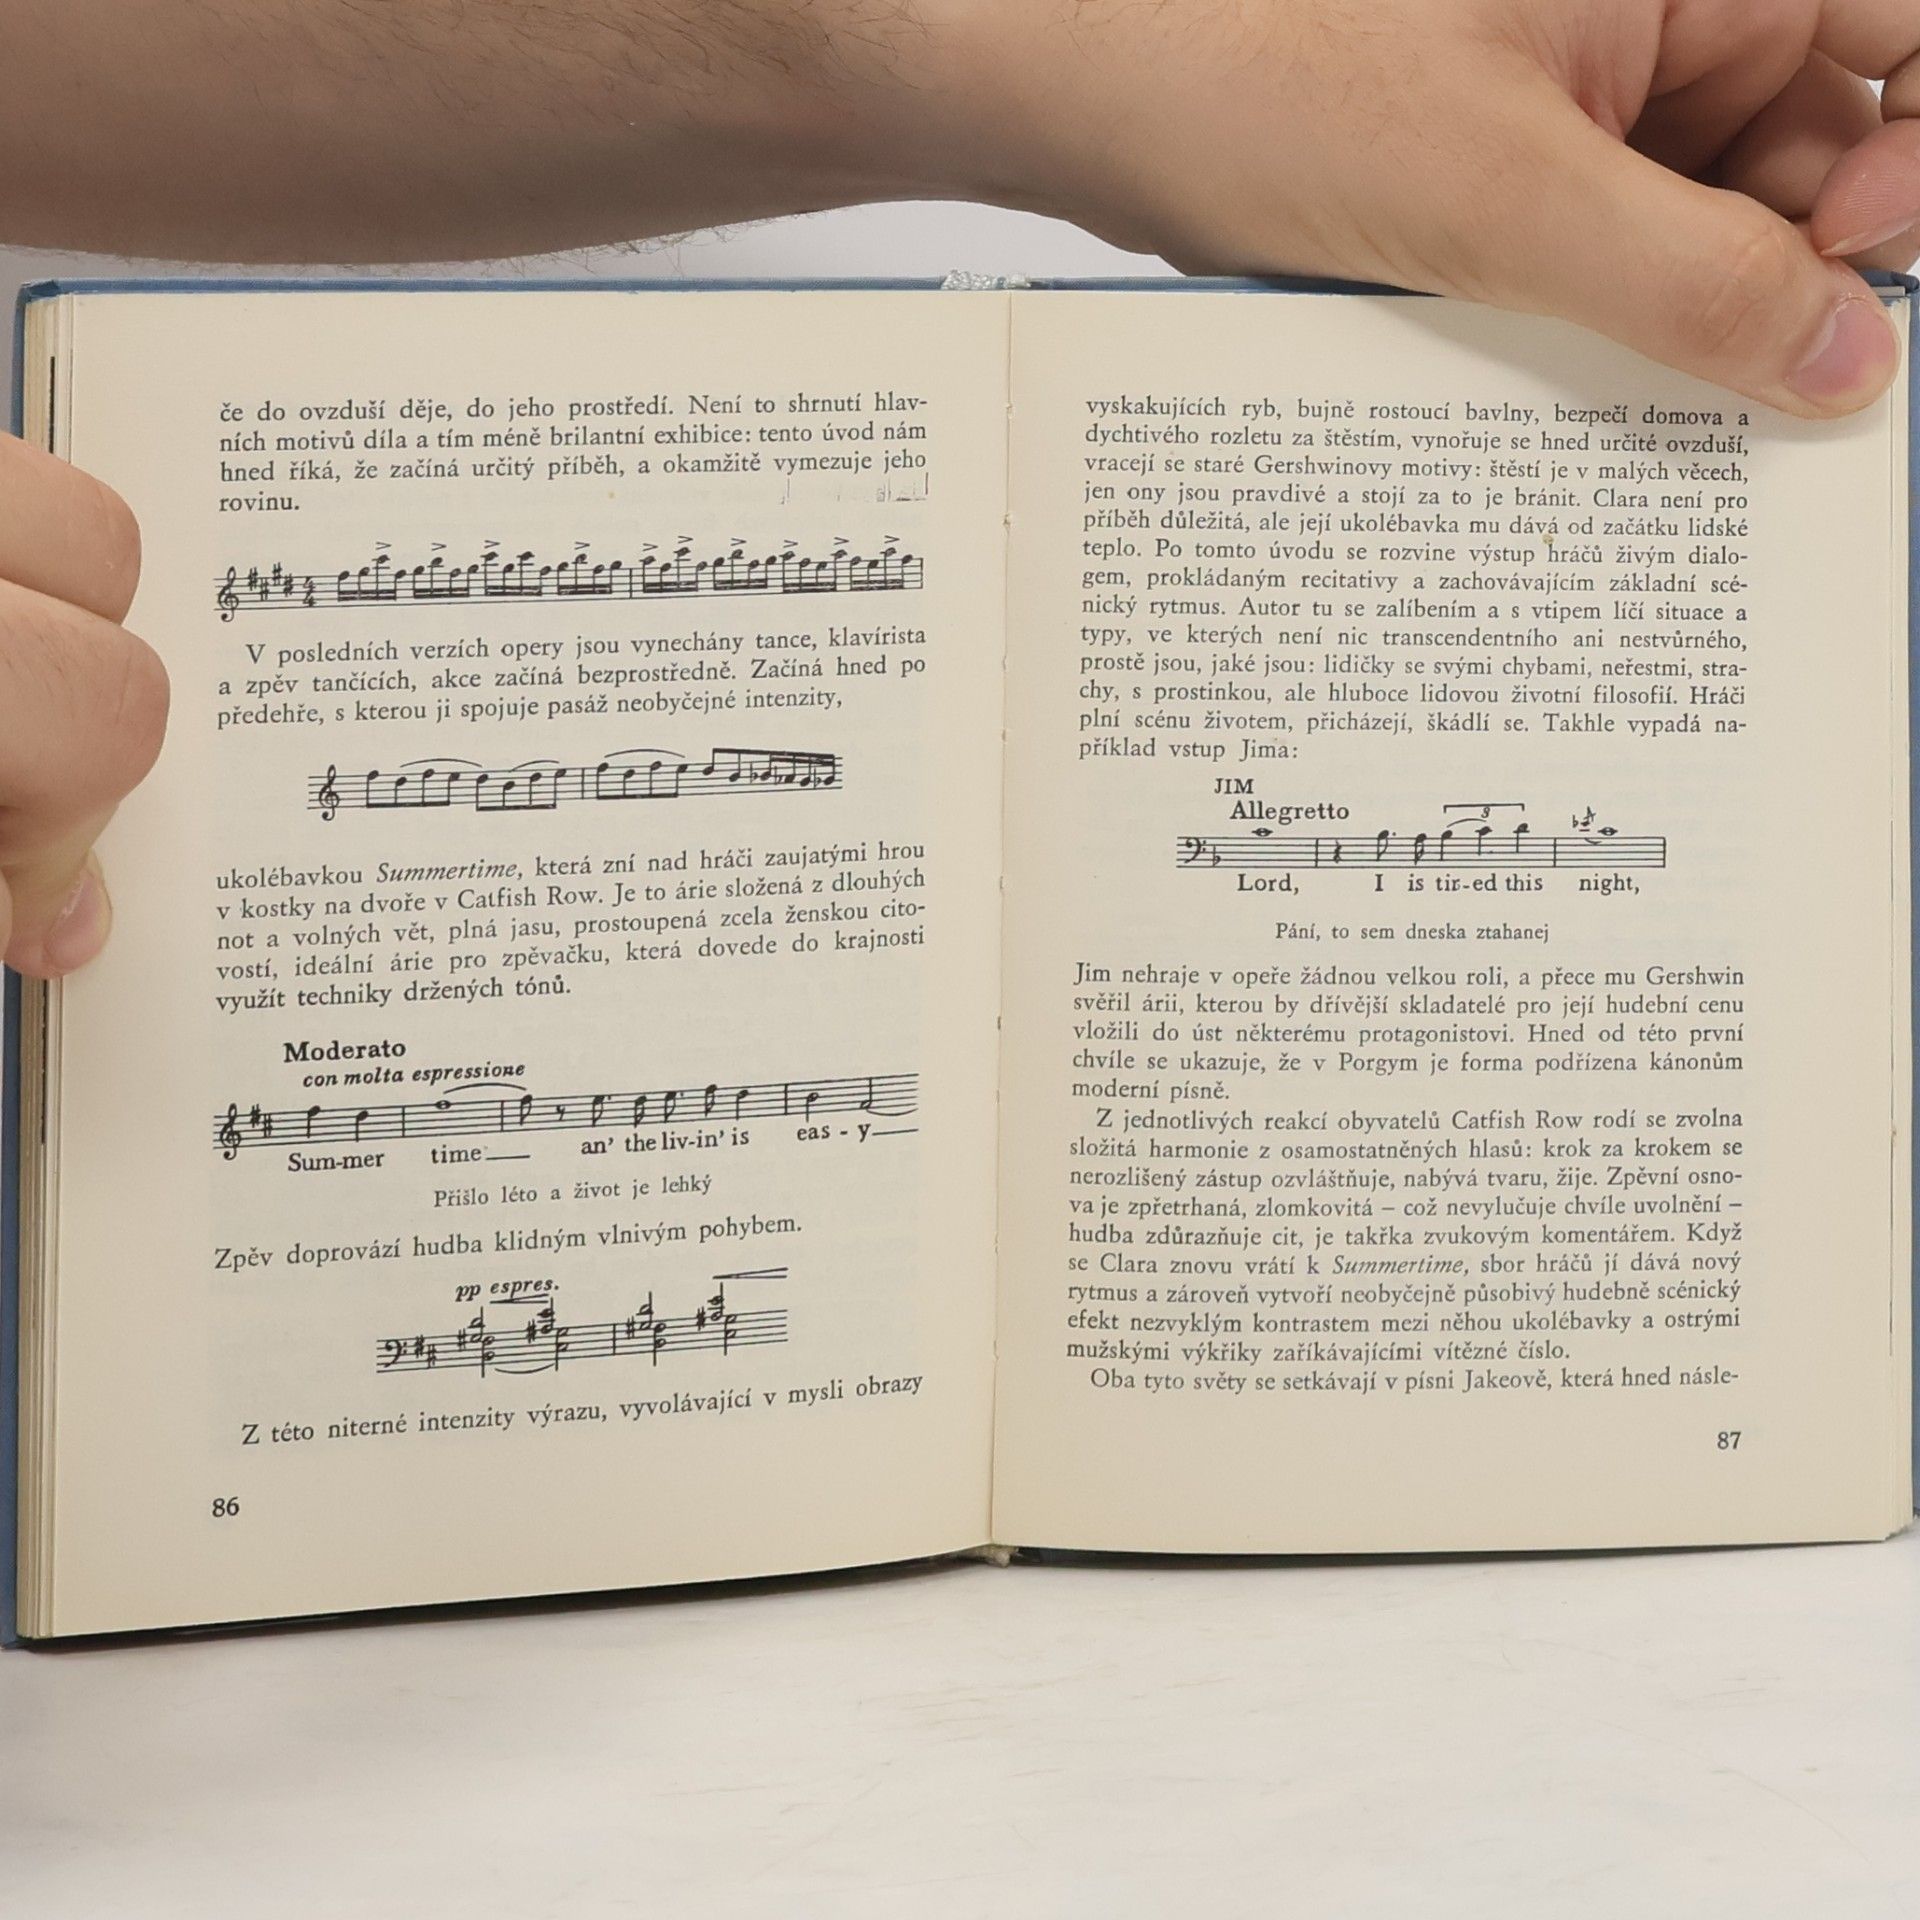 če do ovzduší děje, do jeho prostředí. Není to shrnutí hlav-
ních motivů díla a tím méně brilantní exhibice: tento úvod nám
hned říká, že začíná určitý příběh, a okamžitě vymezuje jeho
rovinu.
4
4
V posledních verzích opery jsou vynechány tance, klavírista
a zpěv tančících, akce začíná bezprostředně. Začíná hned po
předehře, s kterou ji spojuje pasáž neobyčejné intenzity,
ukolébavkou Summertime, která zní nad hráči zaujatými hrou
v kostky na dvoře v Catfish Row. Je to árie složená z dlouhých
not a volných vět, plná jasu, prostoupená zcela ženskou cito-
vostí, ideální árie pro zpěvačku, která dovede do krajnosti
využít techniky držených tónů.
Moderato
con molta espressione
Sum-mer time an' the liv-in' is eas - y
Přišlo léto a život je lehký
Zpěv doprovází hudba klidným vlnivým pohybem.
pp espres.
Z této niterné intenzity výrazu, vyvolávající v mysli obrazy
86
vyskakujících ryb, bujně rostoucí bavlny, bezpečí domova a
dychtivého rozletu za štěstím, vynořuje se hned určité ovzduší,
vracejí se staré Gershwinovy motivy: štěstí je v malých věcech,
jen ony jsou pravdivé a stojí za to je bránit. Clara není pro
příběh důležitá, ale její ukolébavka mu dává od začátku lidské
teplo. Po tomto úvodu se rozvine výstup hráčů živým dialo-
gem, prokládaným recitativy a zachovávajícím základní scé-
nický rytmus. Autor tu se zalíbením a s vtipem líčí situace a
typy, ve kterých není nic transcendentního ani nestvůrného,
prostě jsou, jaké jsou: lidičky se svými chybami, neřestmi, stra-
chy, s prostinkou, ale hluboce lidovou životní filosofií. Hráči
plní scénu životem, přicházejí, škádlí se. Takhle vypadá na-
příklad vstup Jima:
JIM
Allegretto
3
Lord, I is tir-ed this night,
Pání, to sem dneska ztahanej
Jim nehraje v opeře žádnou velkou roli, a přece mu Gershwin
svěřil árii, kterou by dřívější skladatelé pro její hudební cenu
vložili do úst některému protagonistovi. Hned od této první
chvíle se ukazuje, že v Porgym je forma podřízena kánonům
moderní písně.
Z jednotlivých reakcí obyvatelů Catfish Row rodí se zvolna
složitá harmonie z osamostatněných hlasů: krok za krokem se
nerozlišený zástup ozvláštňuje, nabývá tvaru, žije. Zpěvní osno-
va je zpřetrhaná, zlomkovitá – což nevylučuje chvíle uvolnění –
hudba zdůrazňuje cit, je takřka zvukovým komentářem. Když
se Clara znovu vrátí k Summertime, sbor hráčů jí dává nový
rytmus a zároveň vytvoří neobyčejně působivý hudebně scénický
efekt nezvyklým kontrastem mezi něhou ukolébavky a ostrými
mužskými výkřiky zaříkávajícími vítězné číslo.
Oba tyto světy se setkávají v písni Jakeově, která hned násle-
87